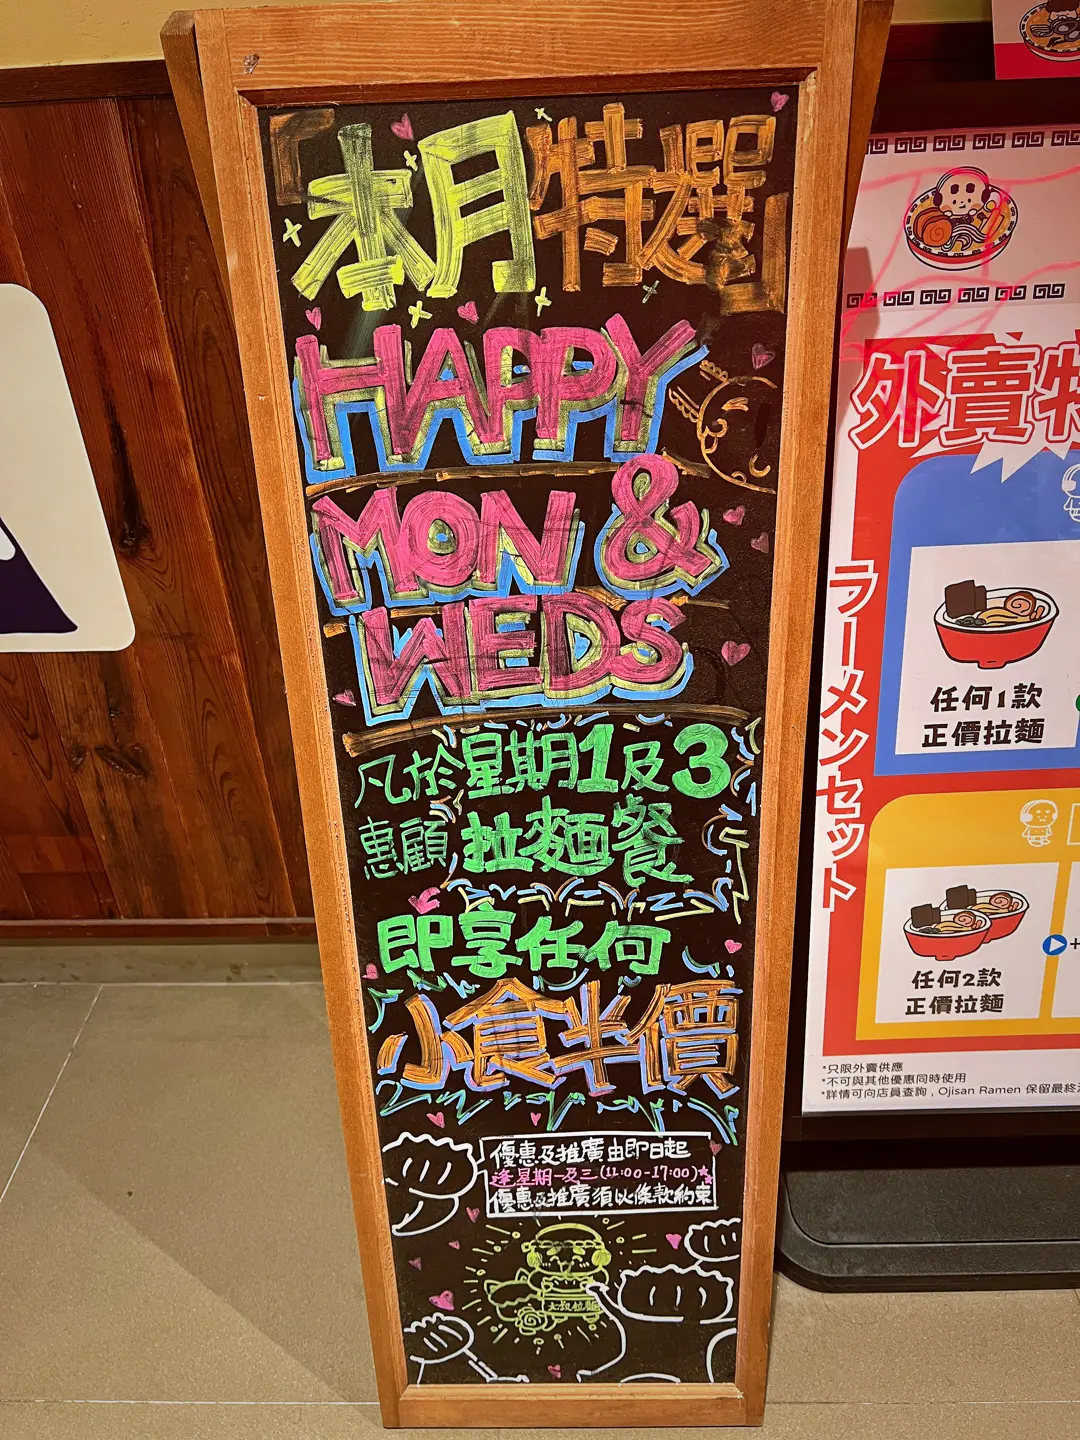 「本月特選」
HAPPY
MON &
WEDS
凡於星期1及3
惠顧 拉麵餐
即享任何
小食半價
優惠及推廣由即日起
逢星期一及三(11:00-17:00)
優惠及推廣須以條款約束
大叔拉麵
外賣特
ラーメンセット
任何1款
正價拉麵
任何2款
正價拉麵
+
*只限外賣供應
*不可與其他優惠同時使用
*詳情可向店員查詢，Ojisan Ramen 保留最終